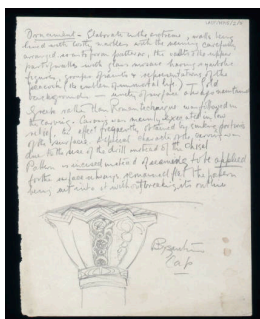 Ornament - Elaborate in the extreme, walls being
lined with with marbles with the veining carefully
arranged so as to form patterns, the vaults & the upper
parts of walls with glass mosaic having symbolic
figures, groups of saints & representations of the
peacock (the emblem of immortal life) — Gold
background - continuity of surface always maintained
Greek rather than Roman technique was employed in
the carving. Carving was mainly executed in low
relief, & effect frequently obtained by sinking portions
of the surfaces. A special character of the carving was
due to the use of the drill instead of the chisel
Pattern is incised instead of seeming to be applied
for the surface always remained flat the pattern
being cut into it without breaking its outline
Byzantine
Cap